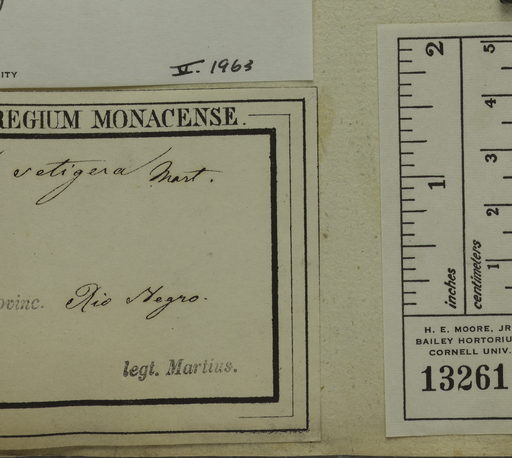 ITY
VI. 1963
REGIUM MONACENSE.
setigera Mart.
ovinc. Rio Negro.
legt. Martius.
2
1
inches
5
4
3
2
1
centimeters
H. E. MOORE, JR
BAILEY HORTORIU
CORNELL UNIV.
13261